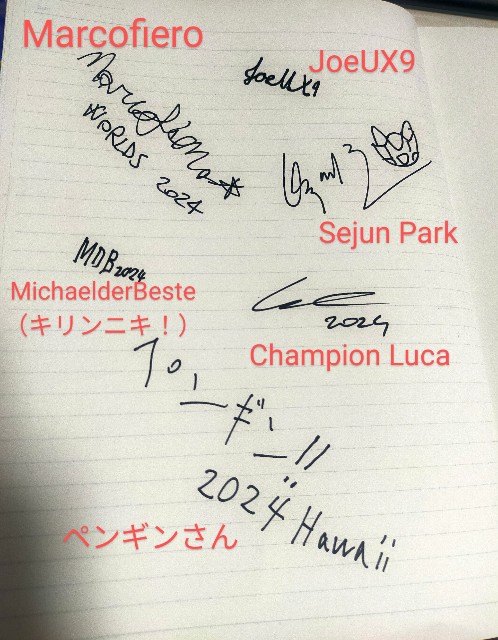 Marcofiero
JoeUX9
Marcofiero
WORLDS
2024
JoeUX9
Sejun Park
MDB2024
MichaelderBeste
（キリンニキ！）
2024
Champion Luca
ペンギン!!
2024 Hawaii
ペンギンさん